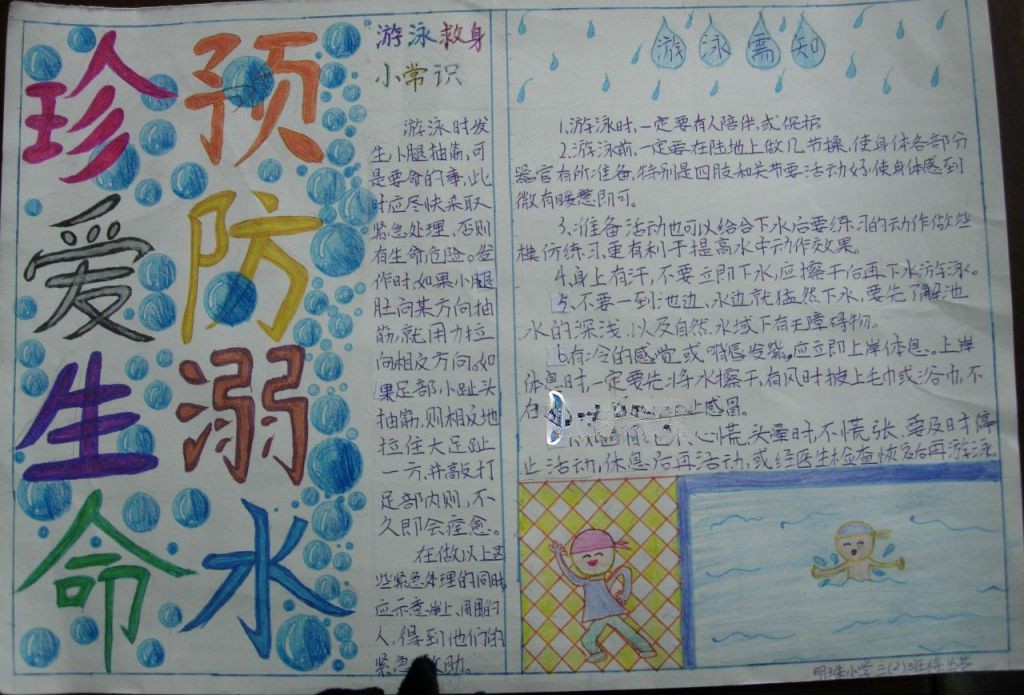 珍爱生命
预防溺水
游泳救身
小常识
游泳时发
生小腿抽筋,可
是要命的事,此
时应尽快采取
紧急处理,否则
有生命危险。发
作时,如果小腿
肚向某方向抽
筋,就用力拉
向相反方向。如
果足部小趾头
抽筋,则相反地
拉住大足趾
一方,并敲打
足部内则,不
久即会痊愈。
在做以上这
些紧急处理的同时,
应示意岸上、周围的
人,得到他们的
紧急 助。
游泳需知
1.游泳时,一定要有人陪伴,或保护
2.游泳前,一定要在陆地上做几节操,使身体各部分
器官有所准备,特别是四肢和关节要活动好,使身体感到
微有暖意即可。
3.准备活动也可以结合下水后要练习的动作做些
模仿练习,更有利于提高水中动作效果。
4.身上有汗,不要立即下水,应擦干后再下水游泳。
5.不要一到池边、水边就猛然下水,要先了解池
水的深浅,以及自然水域下有无障碍物。
6.有冷的感觉或嘴唇发紫,应立即上岸休息。上岸
休息时,一定要先将水擦干,有风时披上毛巾或浴巾,不
在 上感冒。
心慌、头晕时,不慌张,要及时停
止活动,休息后再活动,或经医生检查恢复后再游泳。
明珠小学三(2)班